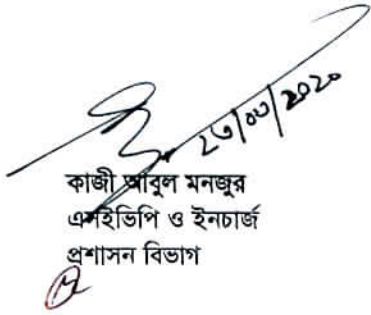 ২৩/০৩/২০২০
কাজী আবুল মনজুর
এসইভিপি ও ইনচার্জ
প্রশাসন বিভাগ